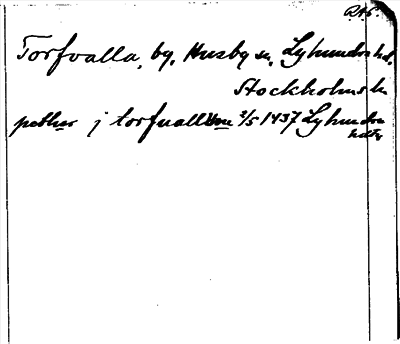 RA5.
Torfvalla, by, Husby sn, Lyhundra hd.
Stockholms l.
pether j torfualle 2/5 1437 Lyhundra
hdr